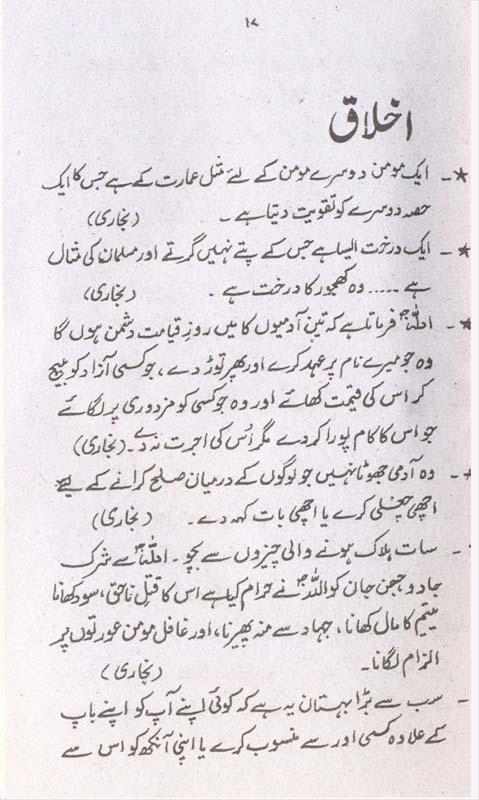 ۱۷
اخلاق
★۔ ایک مومن دوسرے مومن کے لئے مثل عمارت کے ہے جس کا ایک
حصہ دوسرے کو تقویت دیتا ہے ۔ (بخاری)
★۔ ایک درخت ایسا ہے جس کے پتے نہیں گرتے اور مسلمان کی مثال
ہے ..... وہ کھجور کا درخت ہے ۔ (بخاری)
★۔ اللہ فرماتا ہے کہ تین آدمیوں کا میں روز قیامت دشمن ہوں گا
وہ جو میرے نام پر عہد کرے اور پھر توڑ دے ، جو کسی آزاد کو بیچ
کر اس کی قیمت کھائے اور وہ جو کسی کو مزدوری پر لگائے
جو اس کا کام پورا کر دے مگر اُس کی اجرت نہ دے ۔ (بخاری)
★۔ وہ آدمی جھوٹا نہیں جو لوگوں کے درمیان صلح کرانے کے لیے
اچھی چغلی کرے یا اچھی بات کہہ دے ۔ (بخاری)
۔ سات ہلاک ہونے والی چیزوں سے بچو ۔ اللہ سے شرک
جادو جس جان کو اللہ نے حرام کیا ہے اس کا قتل ناحق ، سود کھانا
یتیم کا مال کھانا ، جہاد سے منہ پھیرنا ، اور غافل مومن عورتوں پر
الزام لگانا ۔ (بخاری)
۔ سب سے بڑا بہتان یہ ہے کہ کوئی اپنے آپ کو اپنے باپ
کے علاوہ کسی اور سے منسوب کرے یا اپنی آنکھ کو اس سے